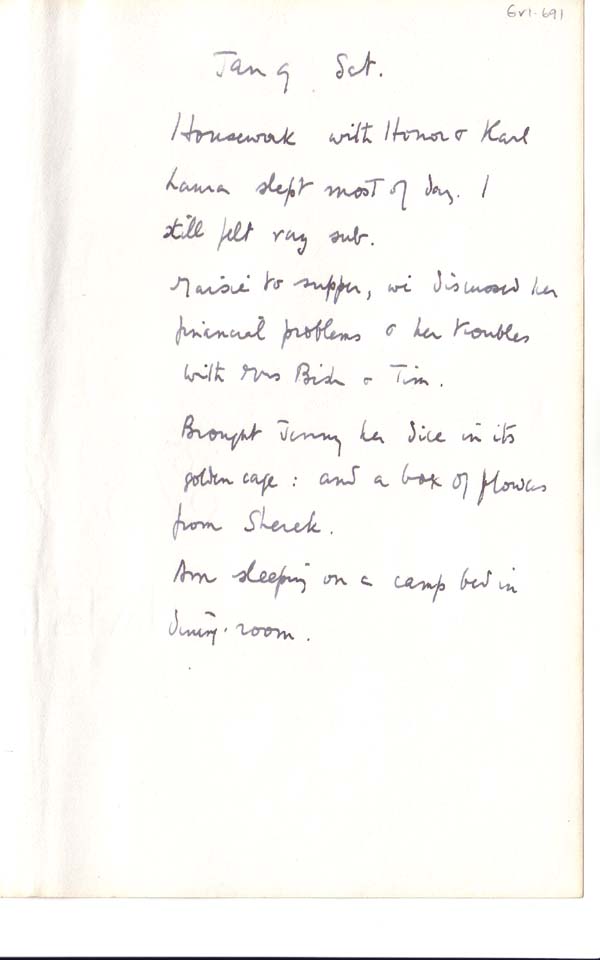 6v1-691
Jan 9 Sat.
Housework with Honor & Karl
Laura slept most of day. I
still felt very sub.
Maisie to supper, we discussed her
financial problems & her troubles
with Mrs Bish & Tim.
Brought Jenny her dice in its
golden cage : and a box of flowers
from Sherek.
Am sleeping on a camp bed in
dining-room.